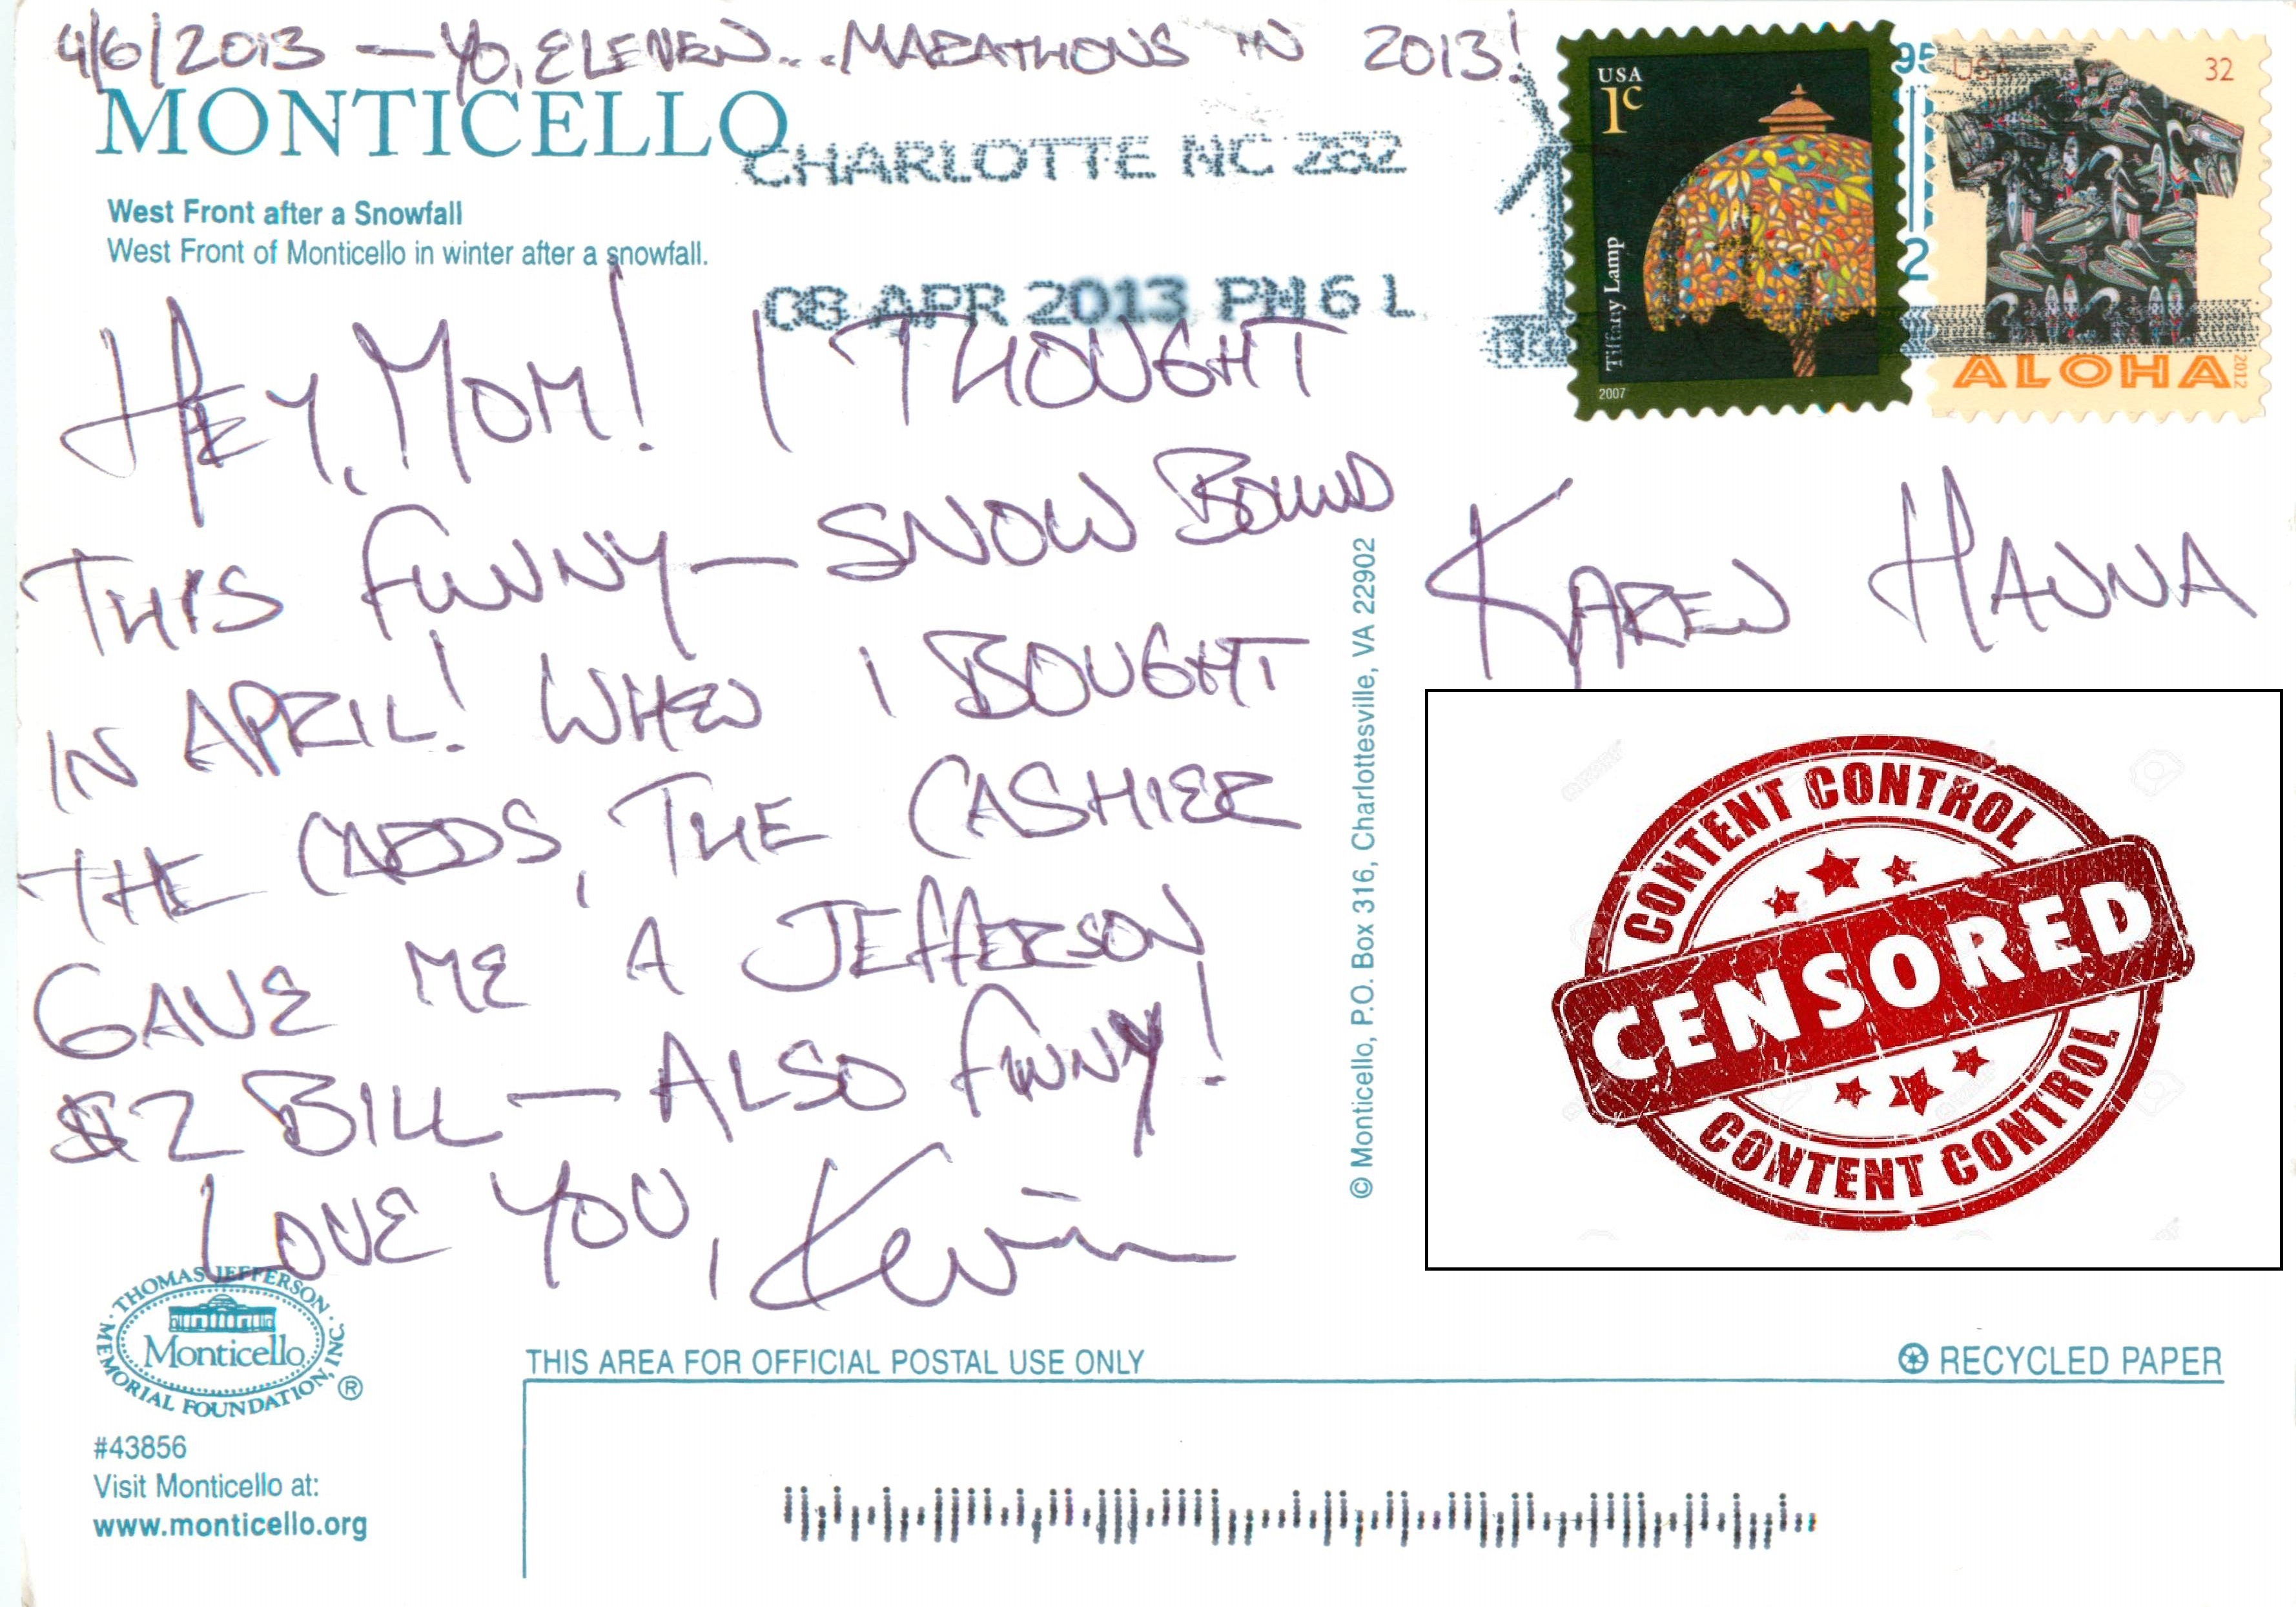 4/6/2013 — YO, ELEVEN... MARATHONS IN 2013!
MONTICELLO
West Front after a Snowfall
West Front of Monticello in winter after a snowfall.
CHARLOTTE NC 282
08 APR 2013 PM 6 L
USA
1c
Tiffany Lamp
2007
95
2
USA
32
ALOHA
2012
HEY, MOM! I THOUGHT
THIS FUNNY — SNOW BOUND
IN APRIL! WHEN I BOUGHT
THE CARDS, THE CASHIER
GAVE ME A JEFFERSON
$2 BILL — ALSO FUNNY!
LOVE YOU, Kevin
© Monticello, P.O. Box 316, Charlottesville, VA 22902
KAREN HANNA
CONTENT CONTROL
CENSORED
CONTENT CONTROL
THOMAS JEFFERSON
Monticello
MEMORIAL FOUNDATION, INC. ®
#43856
Visit Monticello at:
www.monticello.org
THIS AREA FOR OFFICIAL POSTAL USE ONLY
RECYCLED PAPER